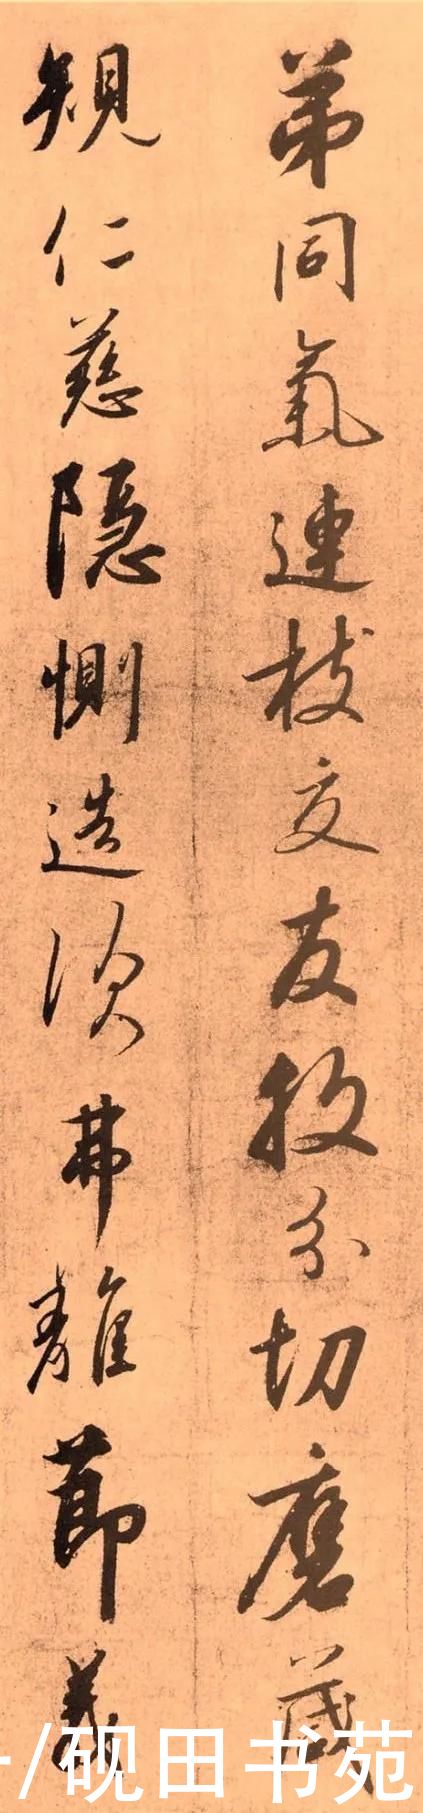 弟同氣連枝交友投分切磨箴
規仁慈隱惻造次弗離節義
/砚田书苑